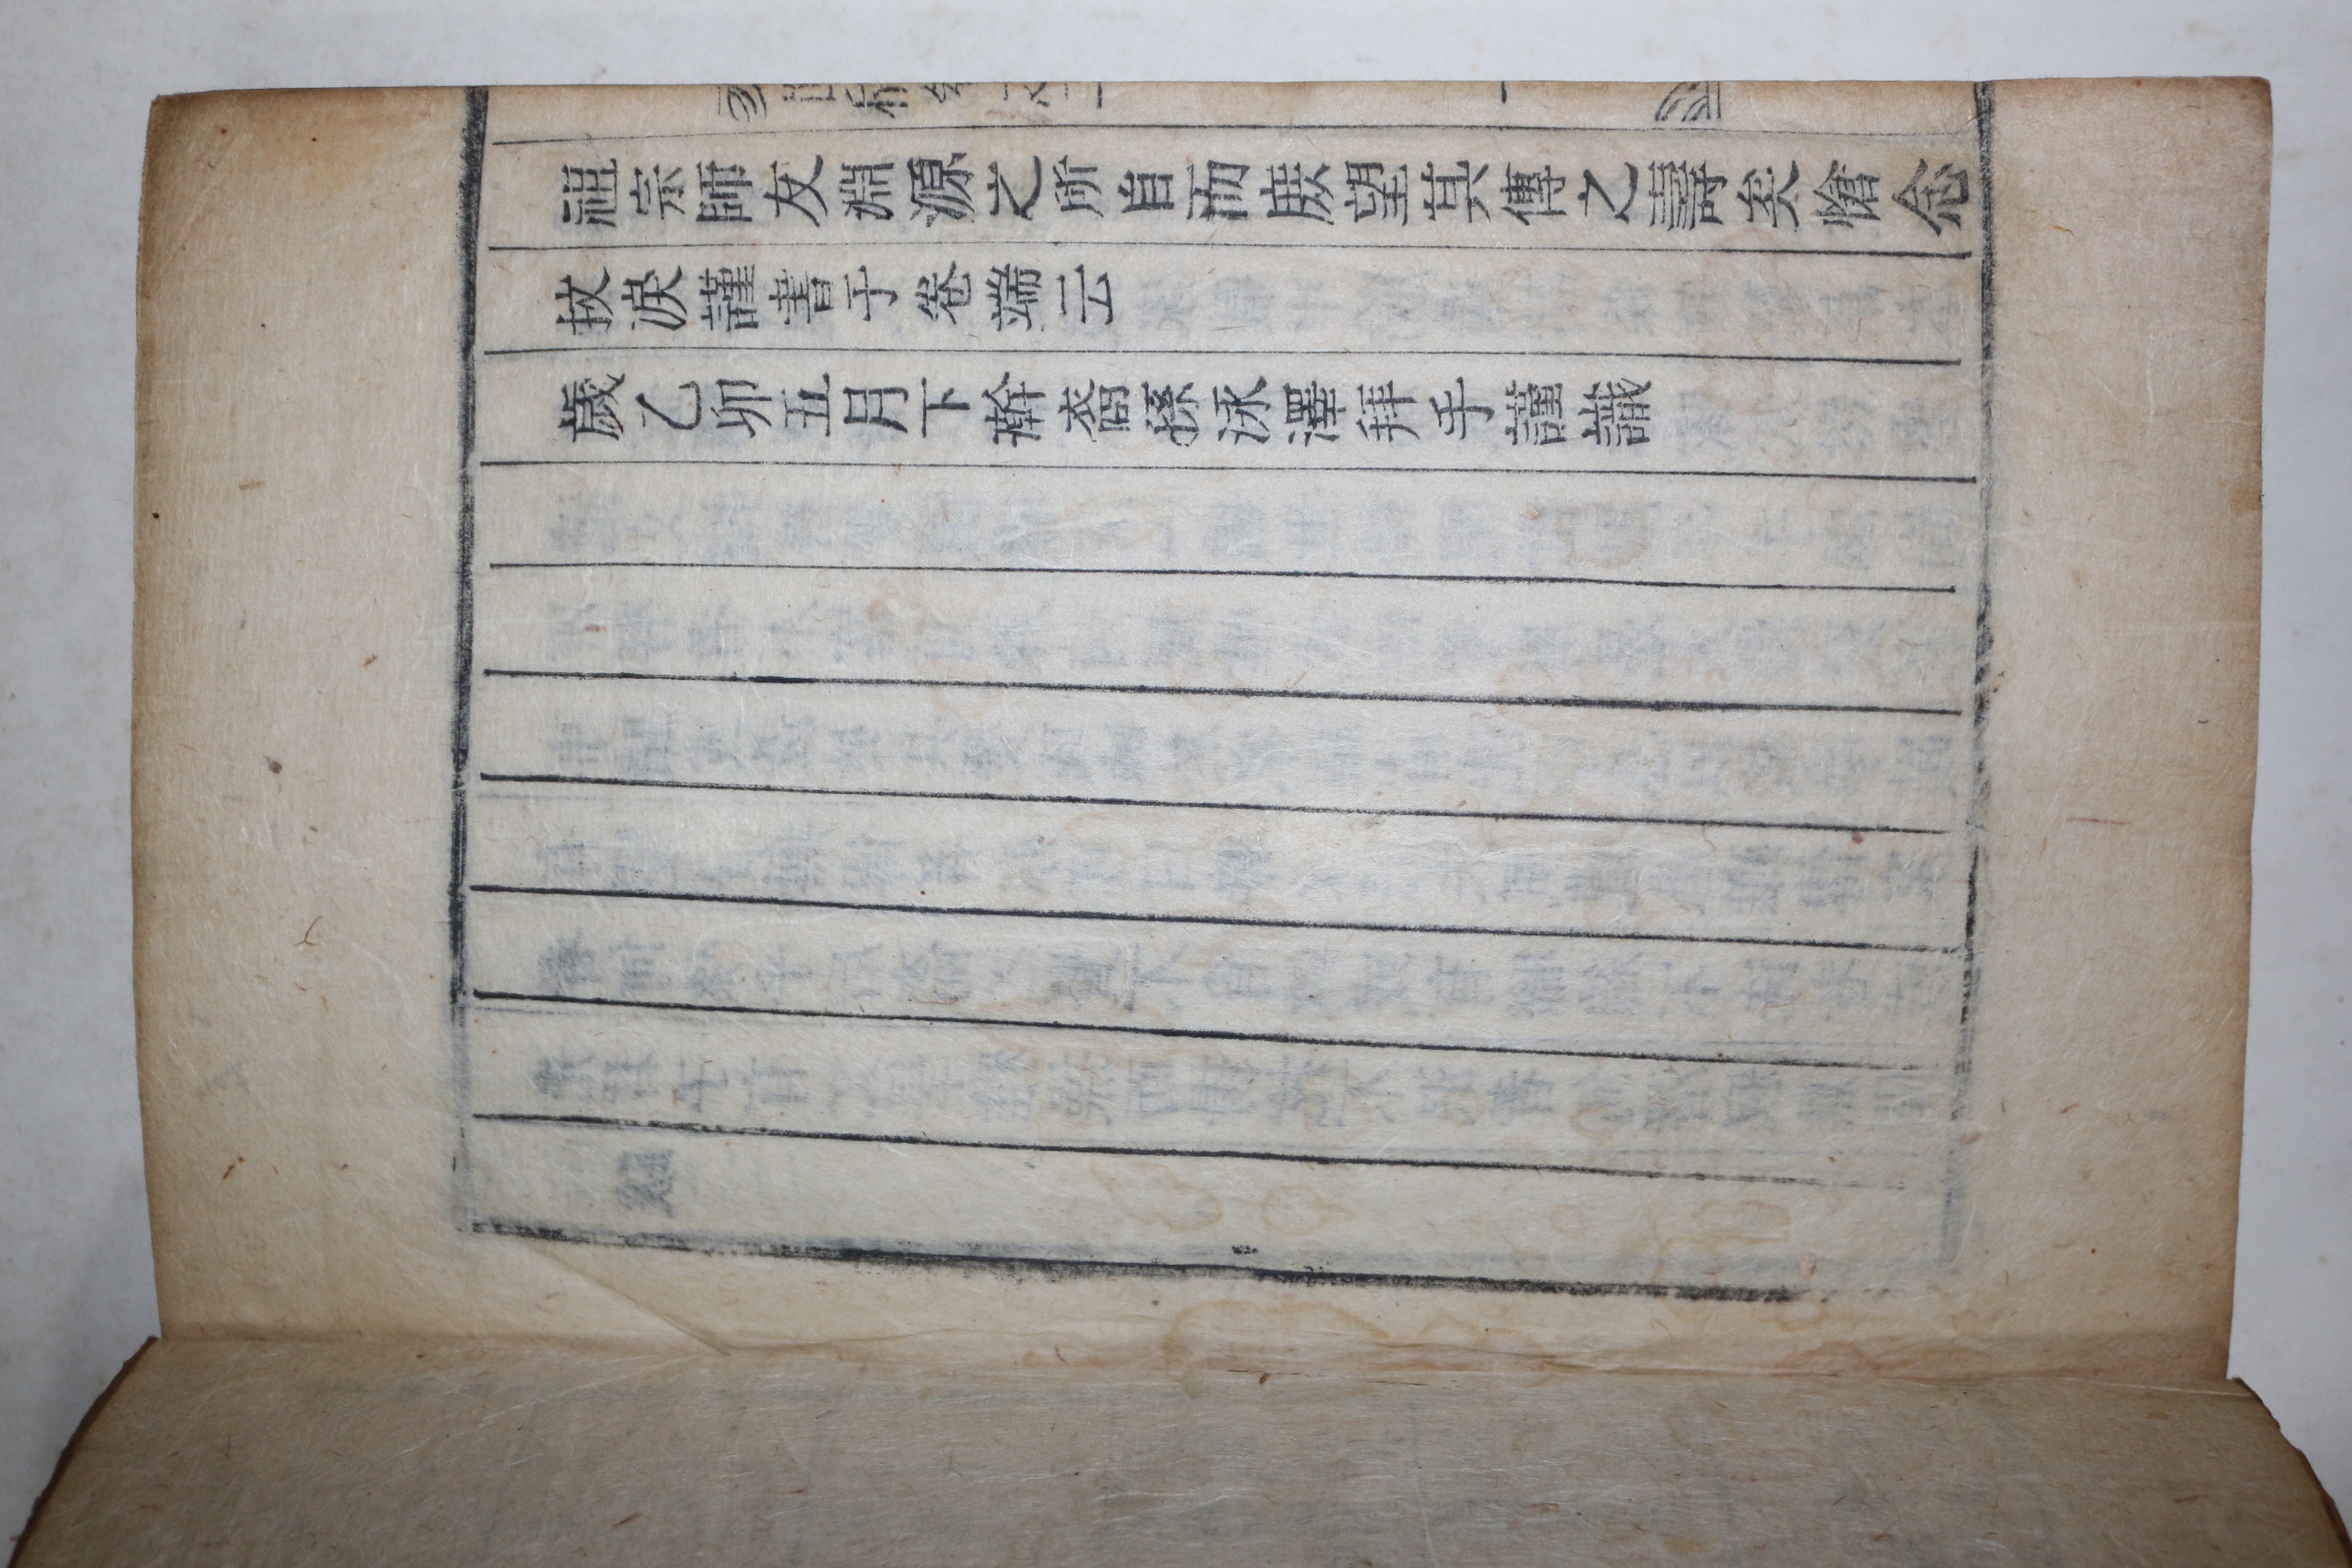 祖宗師友淵源之所自而庶望其傳之壽矣愴念
抆淚謹書于卷端云
歲乙卯五月下澣裔孫泳澤拜手謹識